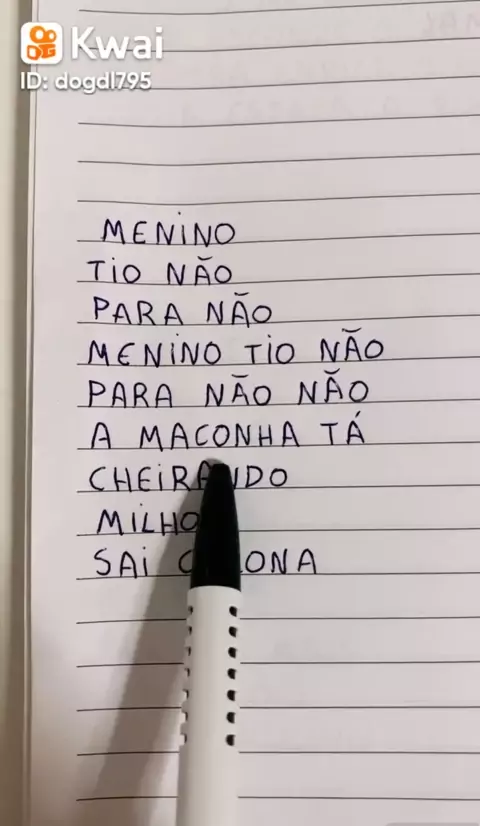 Kwai
ID: dogdl795
MENINO
TIO NÃO
PARA NÃO
MENINO TIO NÃO
PARA NÃO NÃO
A MACONHA TÁ
CHEIRANDO
MILHO
SAI